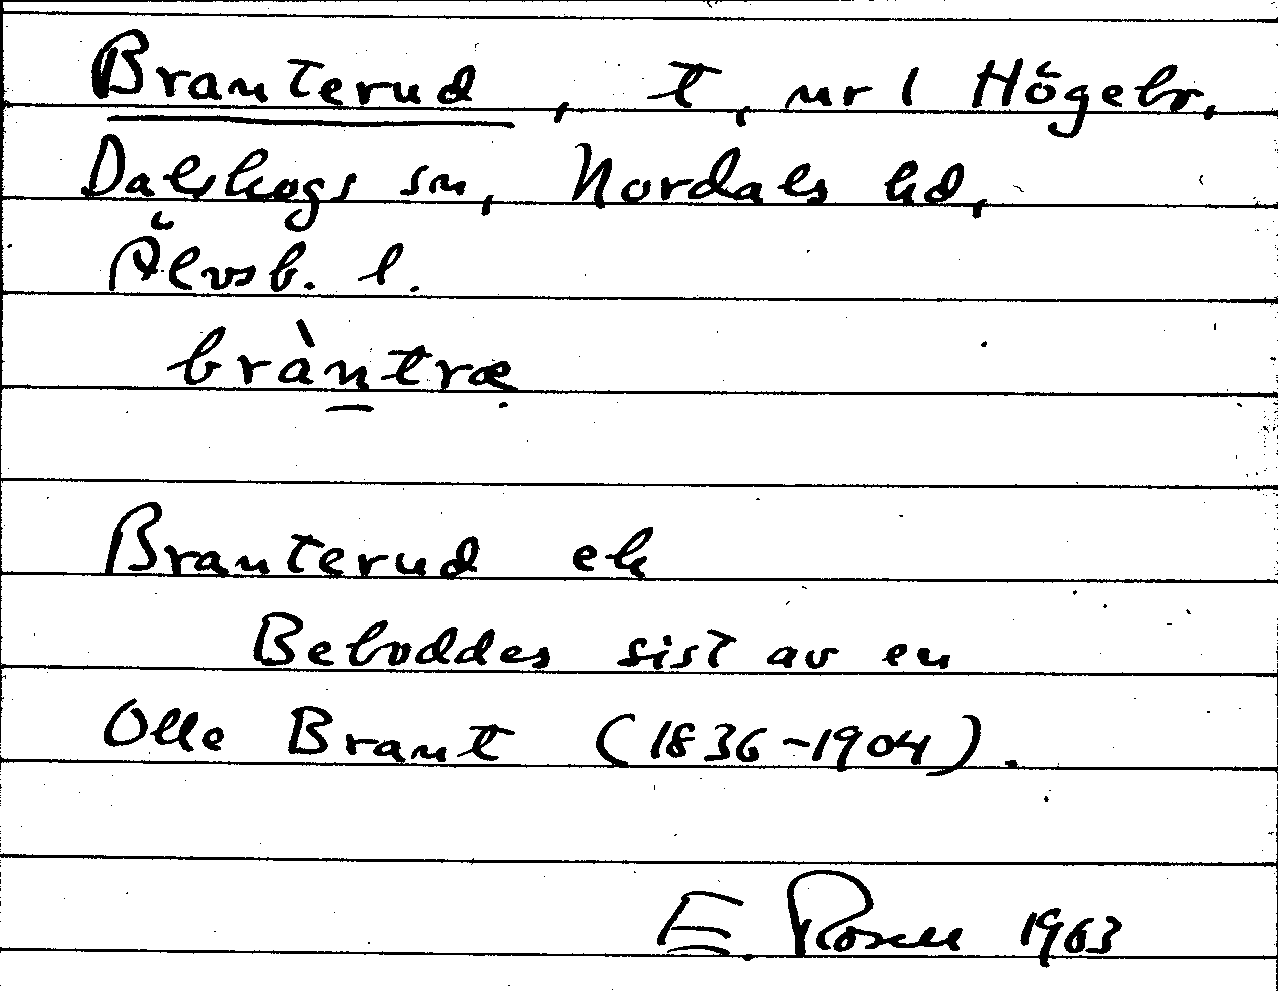 Branterud, t, nr 1 Högebr,
Dalskogs sn, Nordals hd,
Älvsb. l.
bràntræ
Branterud ek
Beboddes sist av en
Olle Brant (1836-1904).
E. Rosell 1963